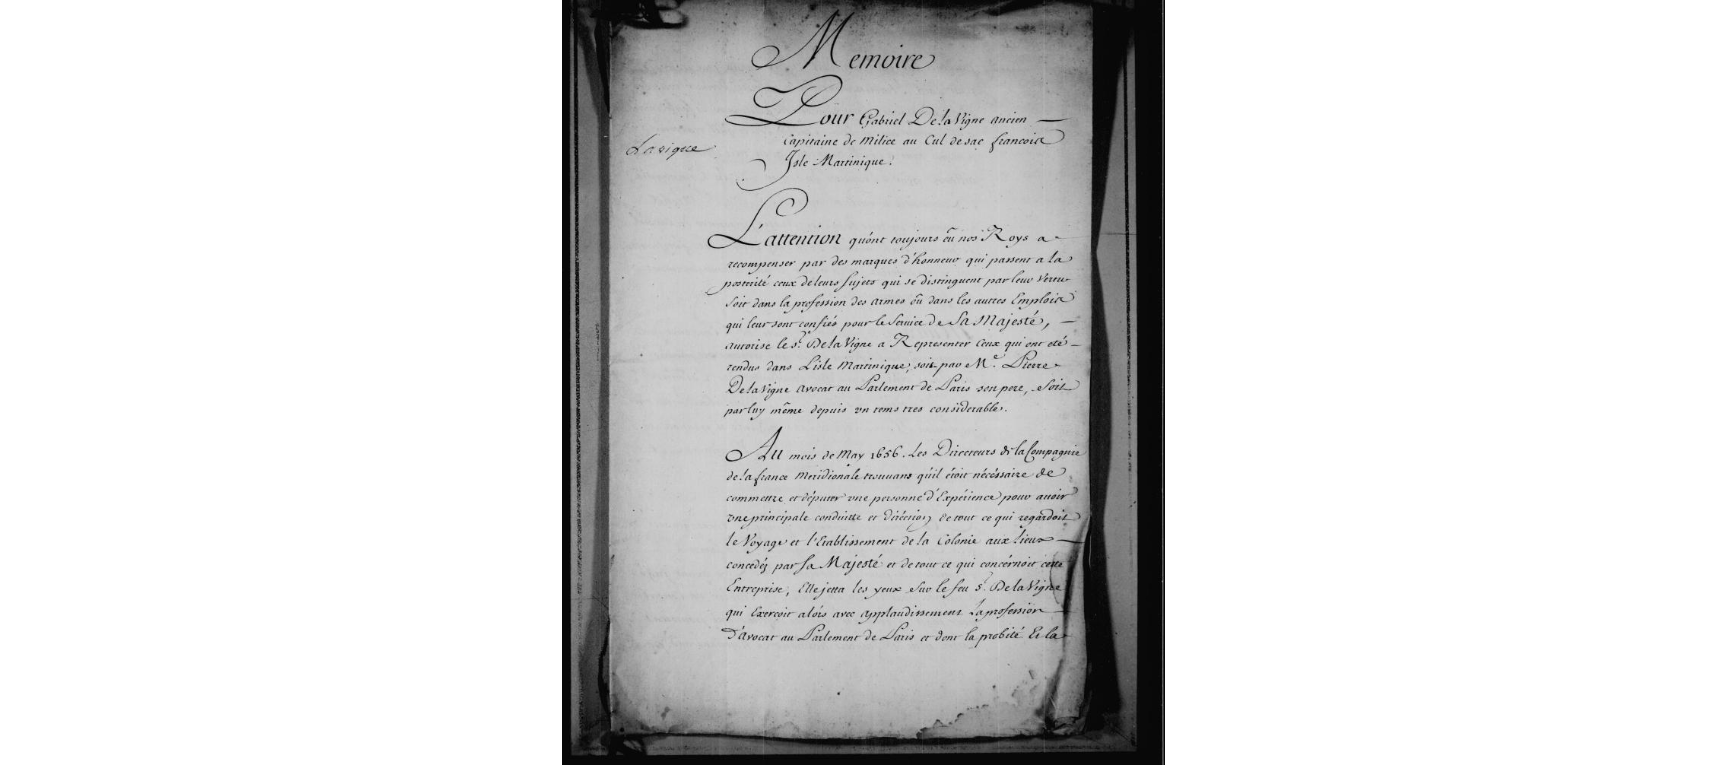 Memoire
Pour Gabriel De la Vigne ancien
Capitaine de Milice au Cul de sac francois
Isle Martinique.
Lavigne
L'attention qu'ont toujours eû nos Roys a
recompenser par des marques d'honneur qui passent a la
posterité ceux de leurs sujets qui se distinguent par leur vertu
soit dans la profession des armes oû dans les autres Emplois
qui leur sont confiés pour le service de Sa Majesté,
autorise le Sr. De la Vigne a Representer Ceux qui ont eté
rendus dans L'isle Martinique, soit par Me. Pierre
De la Vigne avocat au Parlement de Paris son pere, soit
par luy même depuis un tems tres considerable.
Au mois de May 1656. Les Directeurs de la Compagnie
de la france Meridionale trouvans qu'il étoit nécéssaire de
commettre et députer une personne d'Expérience pour avoir
une principale conduitte et diréction de tout ce qui regardoit
le Voyage et l'Etablissement de la Colonie aux lieux
concedéz par Sa Majesté et de tout ce qui concérnoit cette
Entreprise, Elle jetta les yeux sur le feu Sr. De la Vigne
qui Exerçoit alors avec applaudissement La profession
d'avocat au Parlement de Paris et dont la probité Et la